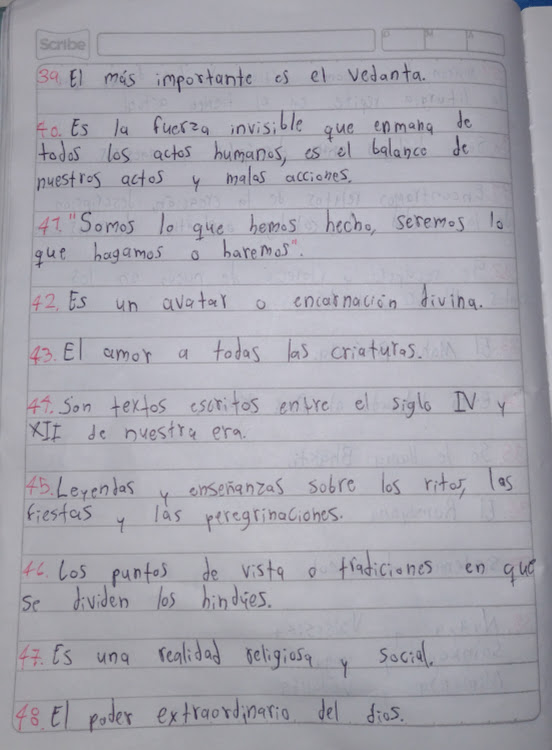 Scribe
D M A
39. El más importante es el Vedanta.
40. Es la fuerza invisible que enmana de
todos los actos humanos, es el balance de
nuestros actos y malas acciones.
41. "Somos lo que hemos hecho, seremos lo
que hagamos o haremos".
42. Es un avatar o encarnación divina.
43. El amor a todas las criaturas.
44. Son textos escritos entre el siglo IV y
XII de nuestra era.
45. Leyendas y enseñanzas sobre los ritos, las
fiestas y las peregrinaciones.
46. Los puntos de vista o tradiciones en que
se dividen los hindúes.
47. Es una realidad religiosa y social.
48. El poder extraordinario del dios.